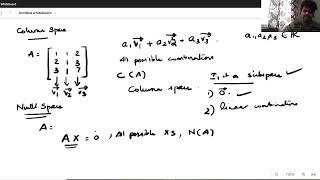 Untitled whiteboard
Column Space
A = [ 1 1 2
2 1 3
3 1 7 ]
v1 v2 v3
a1 v1 + a2 v2 + a3 v3
a1, a2, a3 ∈ ℝ
All possible combinations
C(A)
Column space
Is it a subspace
1) 0
2) linear combination
Null Space
A =
AX = 0, All possible Xs, N(A)